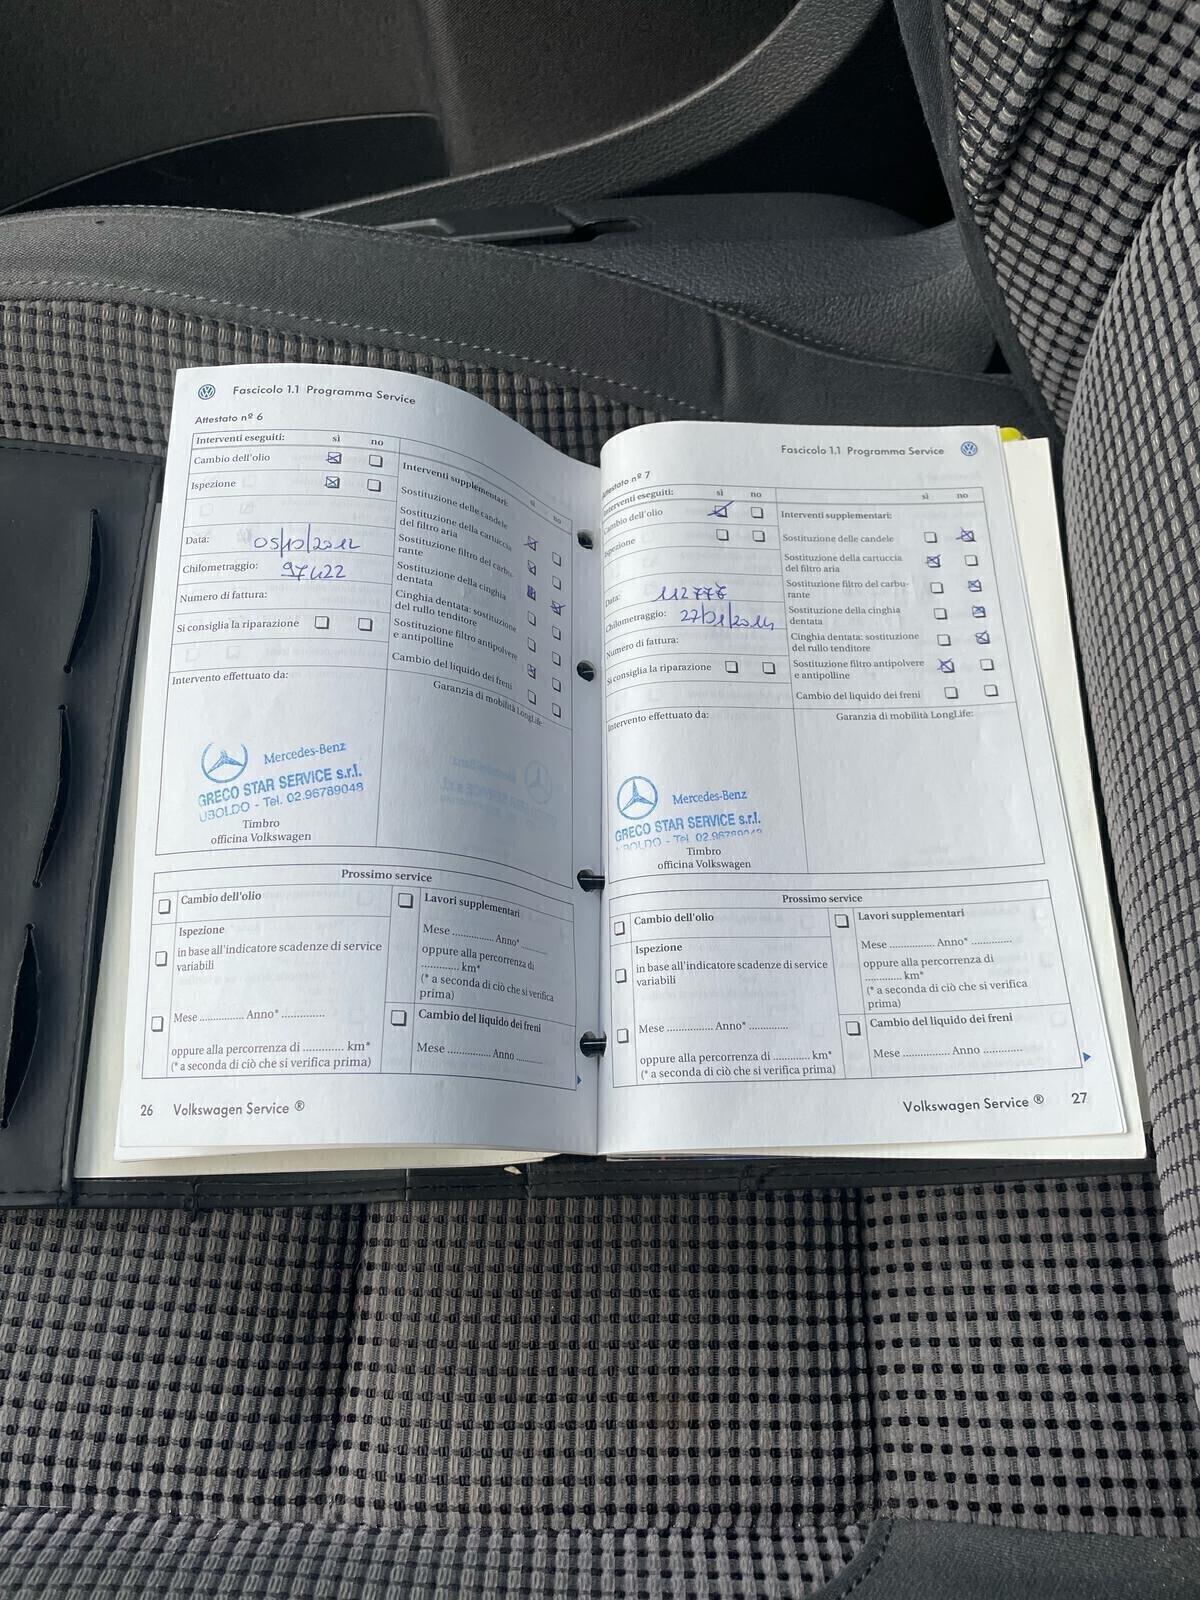 Fascicolo 1.1 Programma Service
Attestato nº 6
Interventi eseguiti: sì no
Cambio dell'olio
Ispezione
Data: 05/10/2012
Chilometraggio: 97422
Numero di fattura:
Si consiglia la riparazione
Intervento effettuato da:
Mercedes-Benz
GRECO STAR SERVICE s.r.l.
UBOLDO - Tel. 02.96789048
Timbro
officina Volkswagen
Interventi supplementari: sì no
Sostituzione delle candele
Sostituzione della cartuccia
del filtro aria
Sostituzione filtro del carbu-
rante
Sostituzione della cinghia
dentata
Cinghia dentata: sostituzione
del rullo tenditore
Sostituzione filtro antipolvere
e antipolline
Cambio del liquido dei freni
Garanzia di mobilità LongLife:
Prossimo service
Cambio dell'olio
Ispezione
in base all'indicatore scadenze di service
variabili
Mese ............... Anno* ...............
oppure alla percorrenza di ............ km*
(* a seconda di ciò che si verifica prima)
Lavori supplementari
Mese ............... Anno* ............
oppure alla percorrenza di
............ km*
(* a seconda di ciò che si verifica
prima)
Cambio del liquido dei freni
Mese ............... Anno .........
26 Volkswagen Service ®
Fascicolo 1.1 Programma Service
Attestato nº 7
Interventi eseguiti: sì no
Cambio dell'olio
Ispezione
Data: 112777
Chilometraggio: 27/01/2014
Numero di fattura:
Si consiglia la riparazione
Intervento effettuato da:
Mercedes-Benz
GRECO STAR SERVICE s.r.l.
UBOLDO - Tel.
Timbro
officina Volkswagen
sì no
Interventi supplementari:
Sostituzione delle candele
Sostituzione della cartuccia
del filtro aria
Sostituzione filtro del carbu-
rante
Sostituzione della cinghia
dentata
Cinghia dentata: sostituzione
del rullo tenditore
Sostituzione filtro antipolvere
e antipolline
Cambio del liquido dei freni
Garanzia di mobilità LongLife:
Prossimo service
Cambio dell'olio
Ispezione
in base all'indicatore scadenze di service
variabili
Mese ................ Anno* ..............
oppure alla percorrenza di ............ km*
(* a seconda di ciò che si verifica prima)
Lavori supplementari
Mese ............... Anno* .............
oppure alla percorrenza di
............ km*
(* a seconda di ciò che si verifica
prima)
Cambio del liquido dei freni
Mese ............... Anno .............
Volkswagen Service ® 27